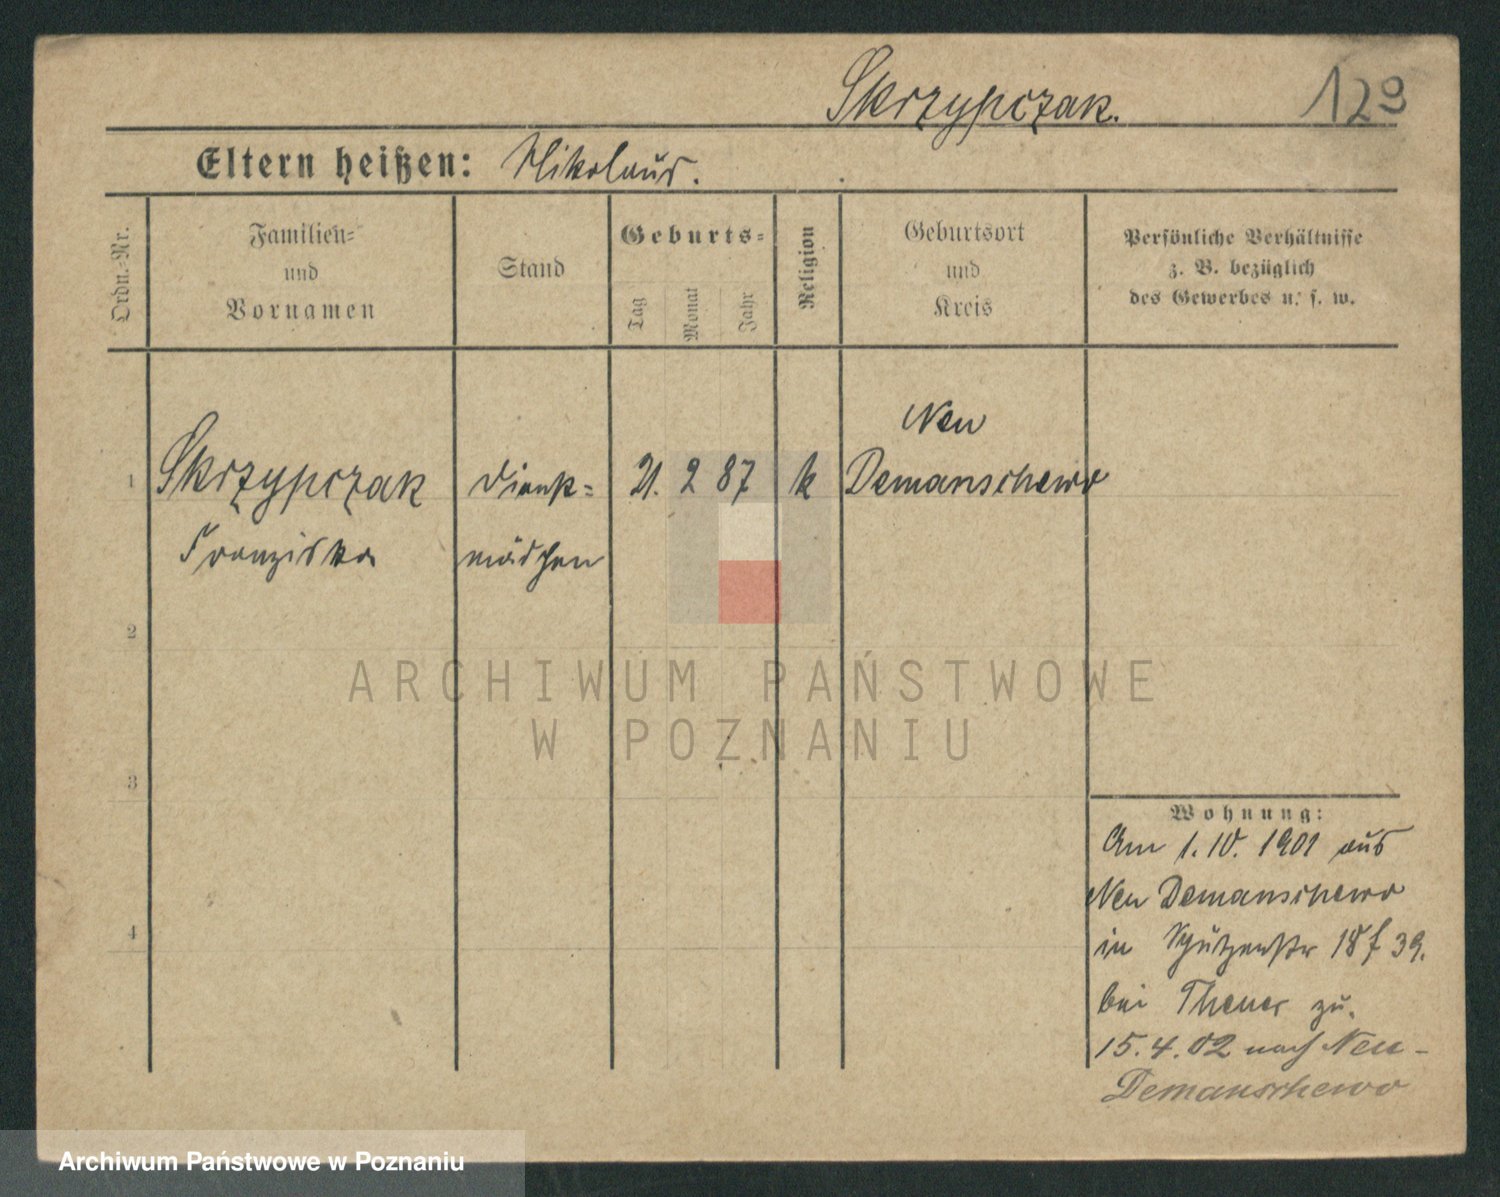 Skrzypczak.
129
Eltern heißen: Nikolaus.
Ordn.-Nr.
Familien-
und
Vornamen
Stand
Geburts-
Tag
Monat
Jahr
Religion
Geburtsort
und
Kreis
Persönliche Verhältnisse
z. B. bezüglich
des Gewerbes u. s. w.
1
Skrzypczak
Franziska
Dienst-
mädchen
21. 2 87
k
Neu
Demanschewo
2
3
4
Wohnung:
Am 1.10. 1901 aus
Neu Demanschewo
in Schützenstr 18 f 39.
bei Theuer zu.
15.4.02 nach Neu-
Demanschewo
ARCHIWUM PAŃSTWOWE
W POZNANIU
Archiwum Państwowe w Poznaniu